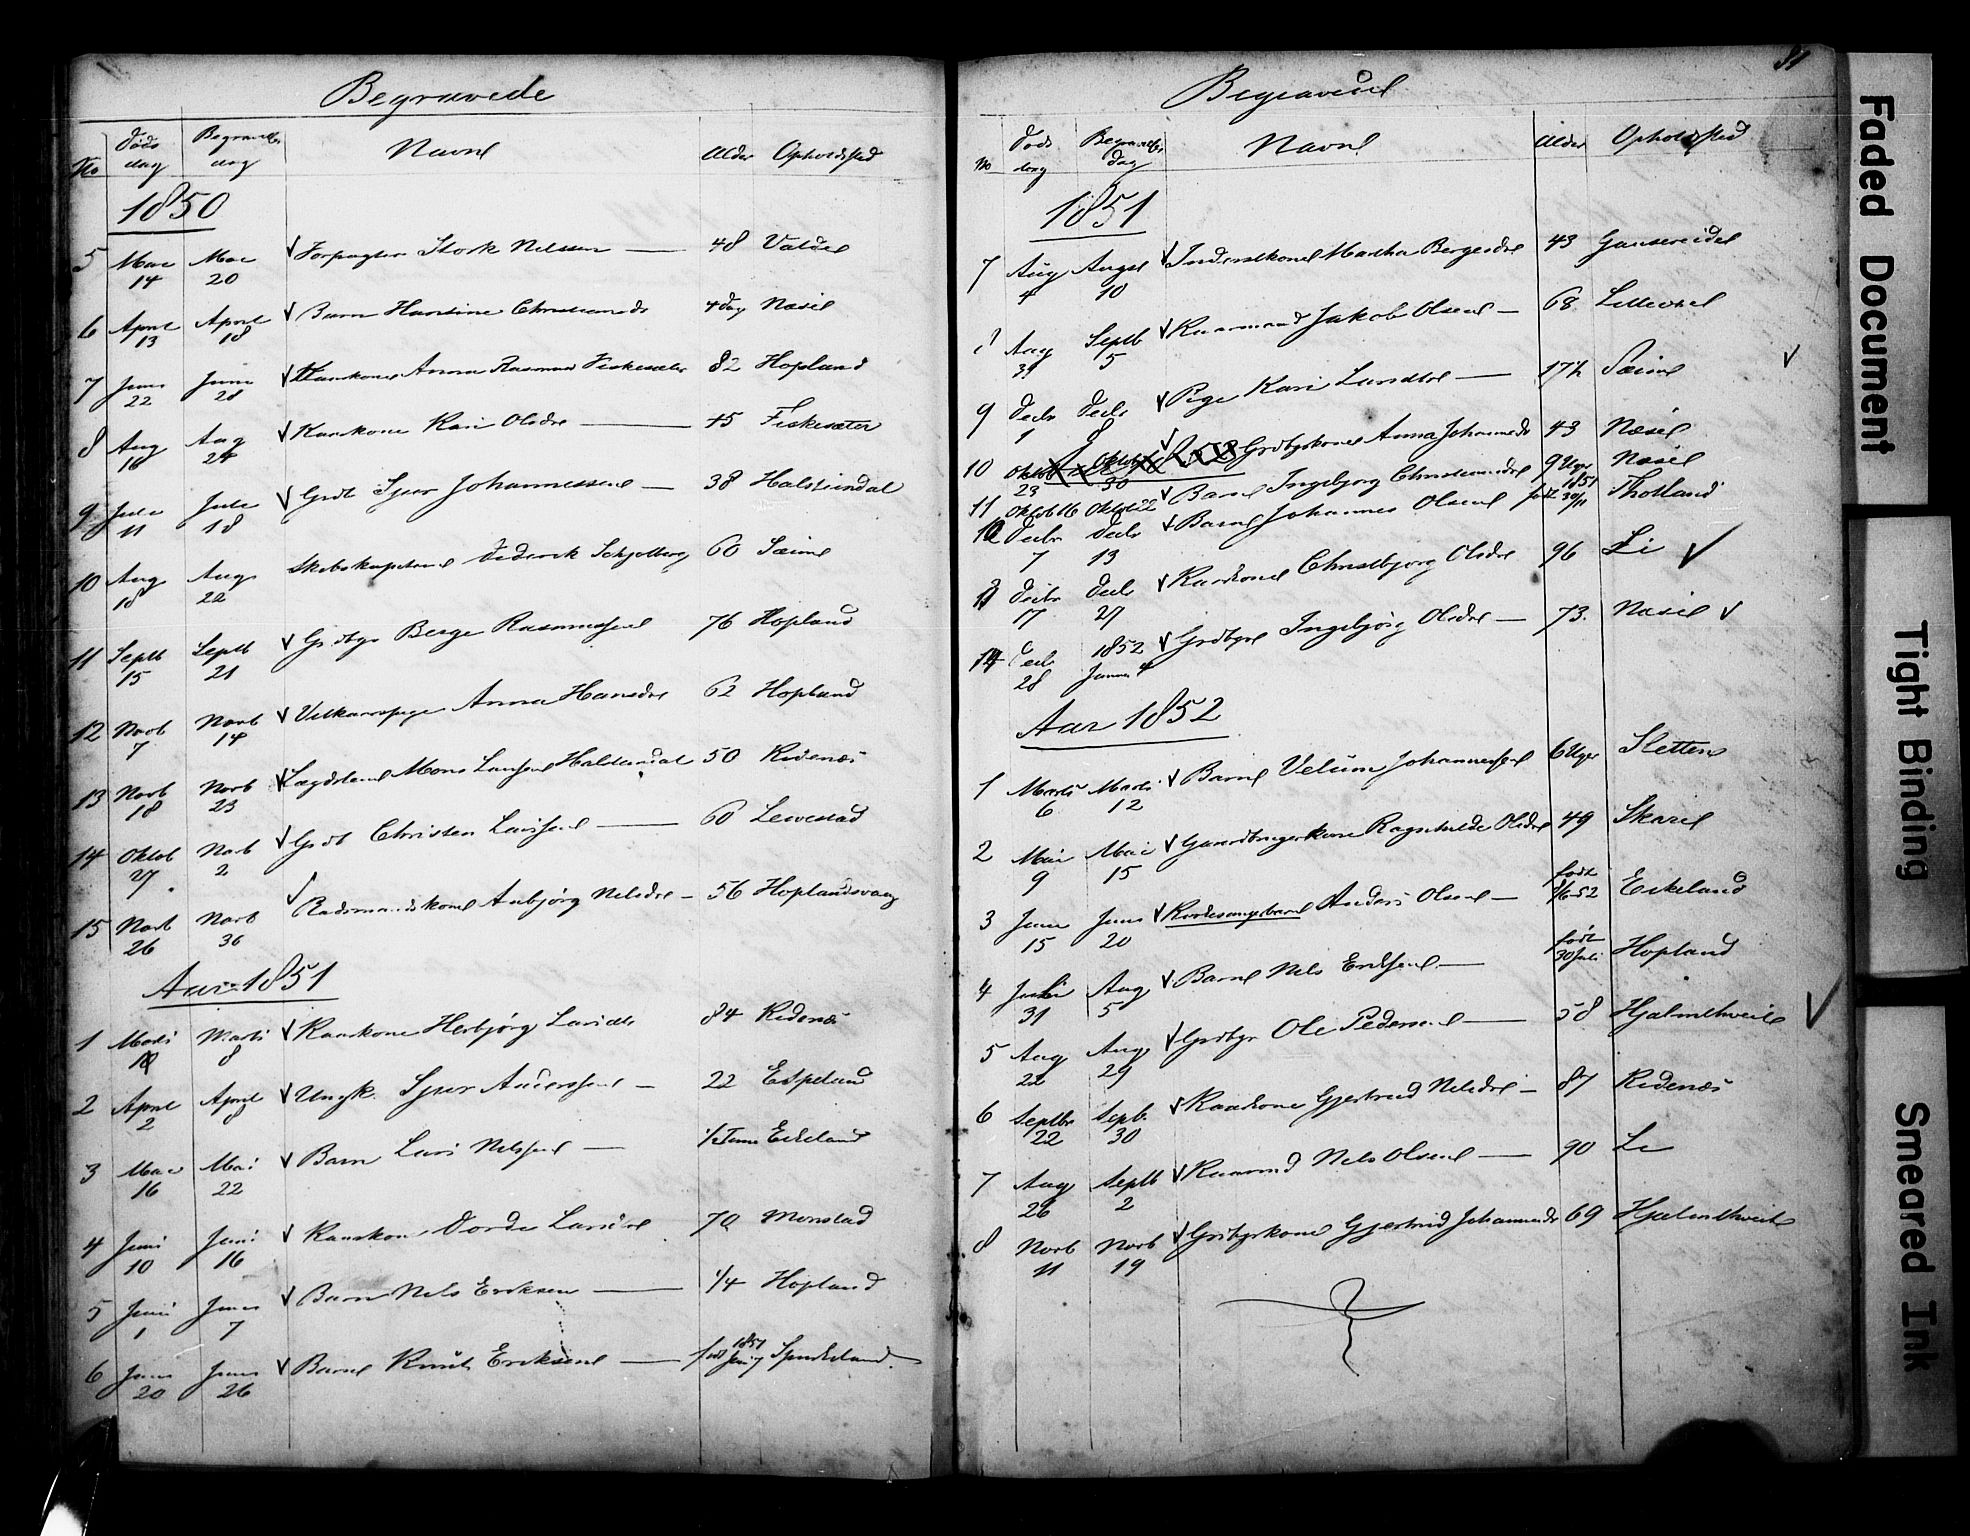 Begravede
No Døds dag Begravelses dag Navn Alder Opholdssted
1850
5 Mai 14 Mai 20 Forpagter Stork Nilssen 48 Valde
6 April 13 April 18 Barn Hansine Christensdr 4 dag Næsse
7 Juni 22 Juni 28 Kaarkone Anna Rasmusd Fiskesæter 82 Hopland
8 Aug 16 Aug 24 Kaarkone Kari Olsdr 45 Fiskesæter
9 Juli 11 Juli 18 Grdb Sjur Johannessen 38 Halsteindal
10 Aug 18 Aug 22 Skibskapteine Diderik Schjelberg 60 Sæim
11 Septb 15 Septb 21 Grdbgr Berge Rasmussen 76 Hopland
12 Novb 7 Novb 14 Vilkaarspige Anna Hansdr 62 Hopland
13 Novb 18 Novb 23 Lægdslem Mons Larssen Halsteindal 50 Ridenæs
14 Oktob 27 Novb 2 Grdb Christen Larssen 60 Levestad
15 Novb 26 Novb 30 Radsmandskone Anbjørg Nilsdr 56 Hoplandsvaag
Aar 1851
1 Marts Marts 8 Kaarkone Herbjørg Larsdr 84 Ridenæs
2 April 2 April 8 Ungk. Sjur Anderssen 22 Espeland
3 Mai 16 Mai 22 Barn Lars Nilssen ½ Time Eikeland
4 Juni 10 Juni 16 Kaarkone Dorde Larsdr 70 Monstad
5 Juni 1 Juni 7 Barn Nils Eriksen 1/4 Hopland
6 Juni 20 Juni 26 Barn Knut Eriksen født 1851 Juni 7
81
Begravede
No Døds dag Begravelses dag Navn Alder Opholdssted
1851
7 Aug 4 Augst 10 Inderstkone Martha Bergesdr 43
8 Aug 31 Septb 5 Kaarmand Jakob Olsen 68 Lilleosen
9 Decbr 1 Decbr 8 Pige Kari Larsdtr 17½ Sæim
10 Oktob 23 Oktob 30 Grdbgrkone Anna Johannesdr 43 Næsse
11 Oktob 16 Oktob 22 Barn Ingebjorg Christensdr 9 Uger Næsse
12 Decbr 7 Decbr 13 Barn Johannes Olsen født 1851 30/11 Tholland
13 Decbr 17 Decbr 27 Kaarkone Christbjorg Olsdr 96 Li
14 Decbr 28 1852 Januar 4 Grdbgr Ingebjørg Olsdr 73. Næsse
Aar 1852
1 Marts 6 Marts 12 Barn Vilum Johannessen 6 Uger Sletten
2 Mai 9 Mai 15 Gaardbrugerkone Ragnhilde Olsdr 49 Skare
3 Juni 15 Juni 20 Anders Olsen født 8/6 52 Eikeland
4 Juli 31 Aug 5 Barn Nils Eriksen født 30 Juli Hopland
5 Aug 22 Aug 29 Grdbgr Ole Pedersen 58 Hjelmtveit
6 Septbr 22 Septb. 30 Kaarkone Gjertrud Nilsdr 87 Ridenæs
7 Aug 26 Septb 2 Kaarmd Nils Olsen 90 Li
8 Novb 11 Novb 19 Grdbgrkone Gjertrud Johannesdr 69 Hjelmtveit
Faded Document
Tight Binding
Smeared Ink